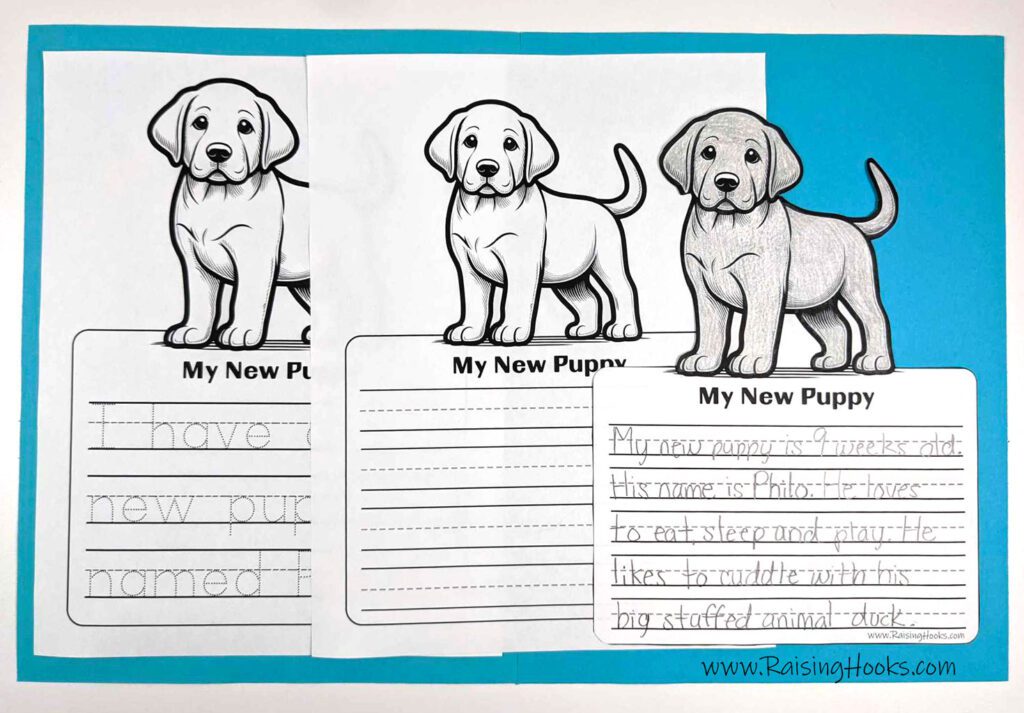 My New Pu
I have
new pup
named
My New Puppy
My New Puppy
My new puppy is 9 weeks old.
His name is Philo. He loves
to eat, sleep and play. He
likes to cuddle with his
big stuffed animal duck.
www.RaisingHooks.com
www.RaisingHooks.com